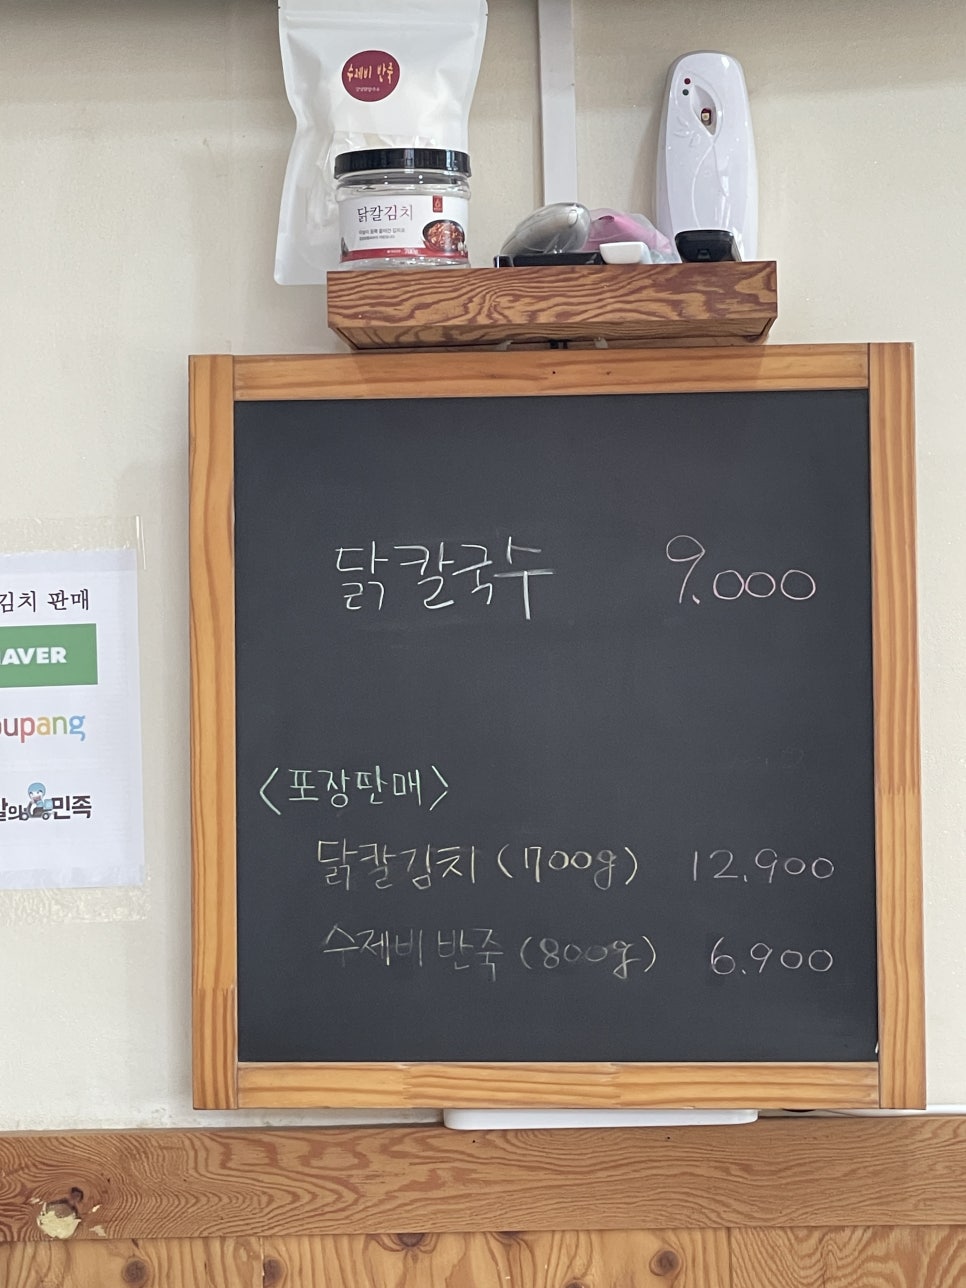 수제비 반죽
닭칼김치
700g
김치 판매
NAVER
coupang
배달의민족
닭칼국수 9.000
<포장판매>
닭칼김치 (700g) 12.900
수제비 반죽 (800g) 6.900